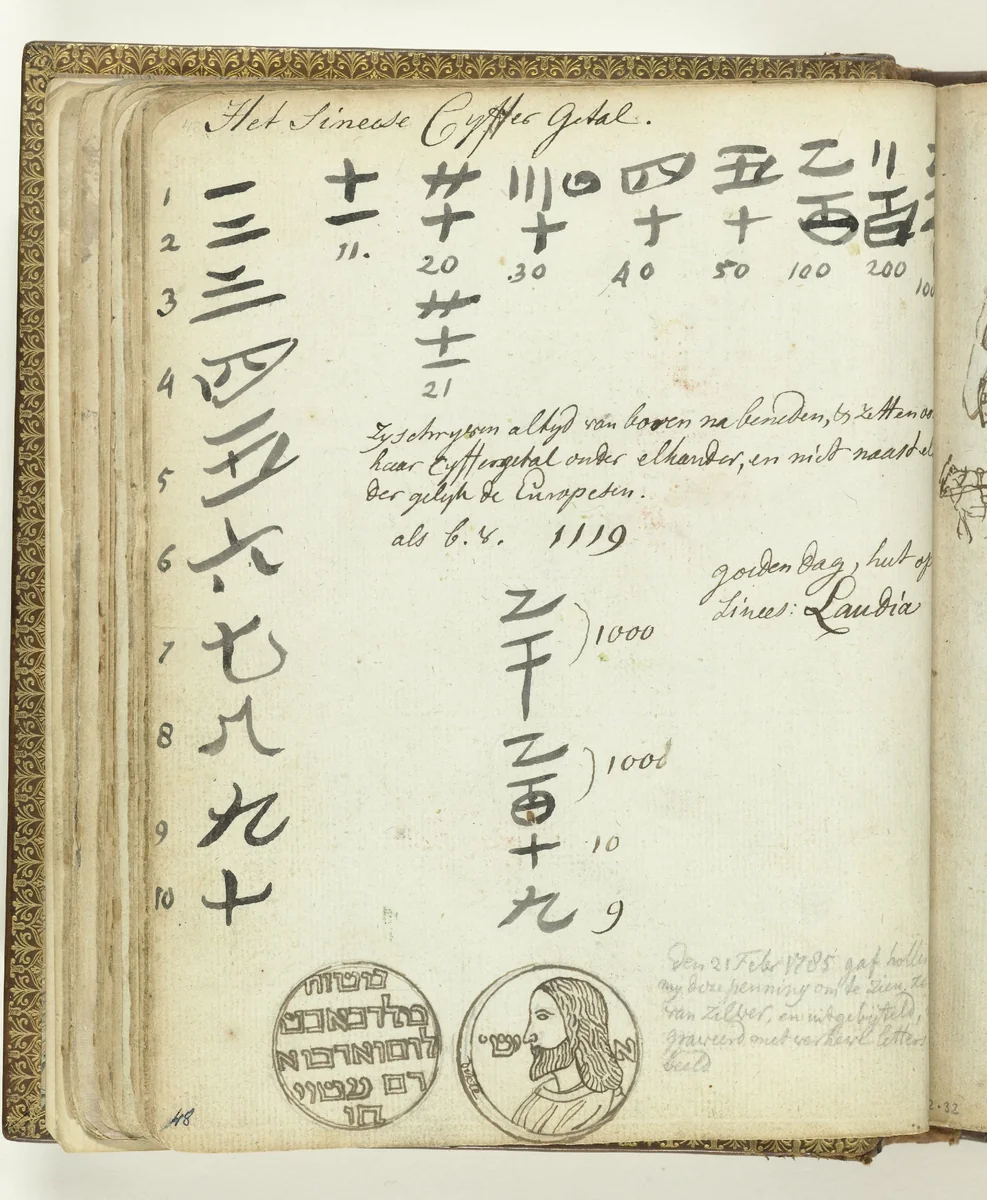 Het Sineese Cyffer Getal.
1 一
2 二
3 三
4 四
5 五
6 六
7 七
8 八
9 九
10 十
十
一
11.
廿
十
20
廿
十
一
21
川
十
30
四
十
40
五
十
50
乙
百
100
百
200
100
Zy schryven altyd van boven na beneden, & zetten
haar Cyffergetal onder elkander, en niet naast el
der gelyk de Europesen.
als b. v. 1119
乙
千
1000
乙
百
1000
十 10
九 9
goeden dag, hiet op
Sinees: Laudia
משוח
מלך בא בש
לום ואד
עשוי
חי
ישו
א
Den 21 Febr 1785 gaf
my deze penning om te zien,
van zilver, en uitgebyteld,
graveerd met verheve letters
beeld
48